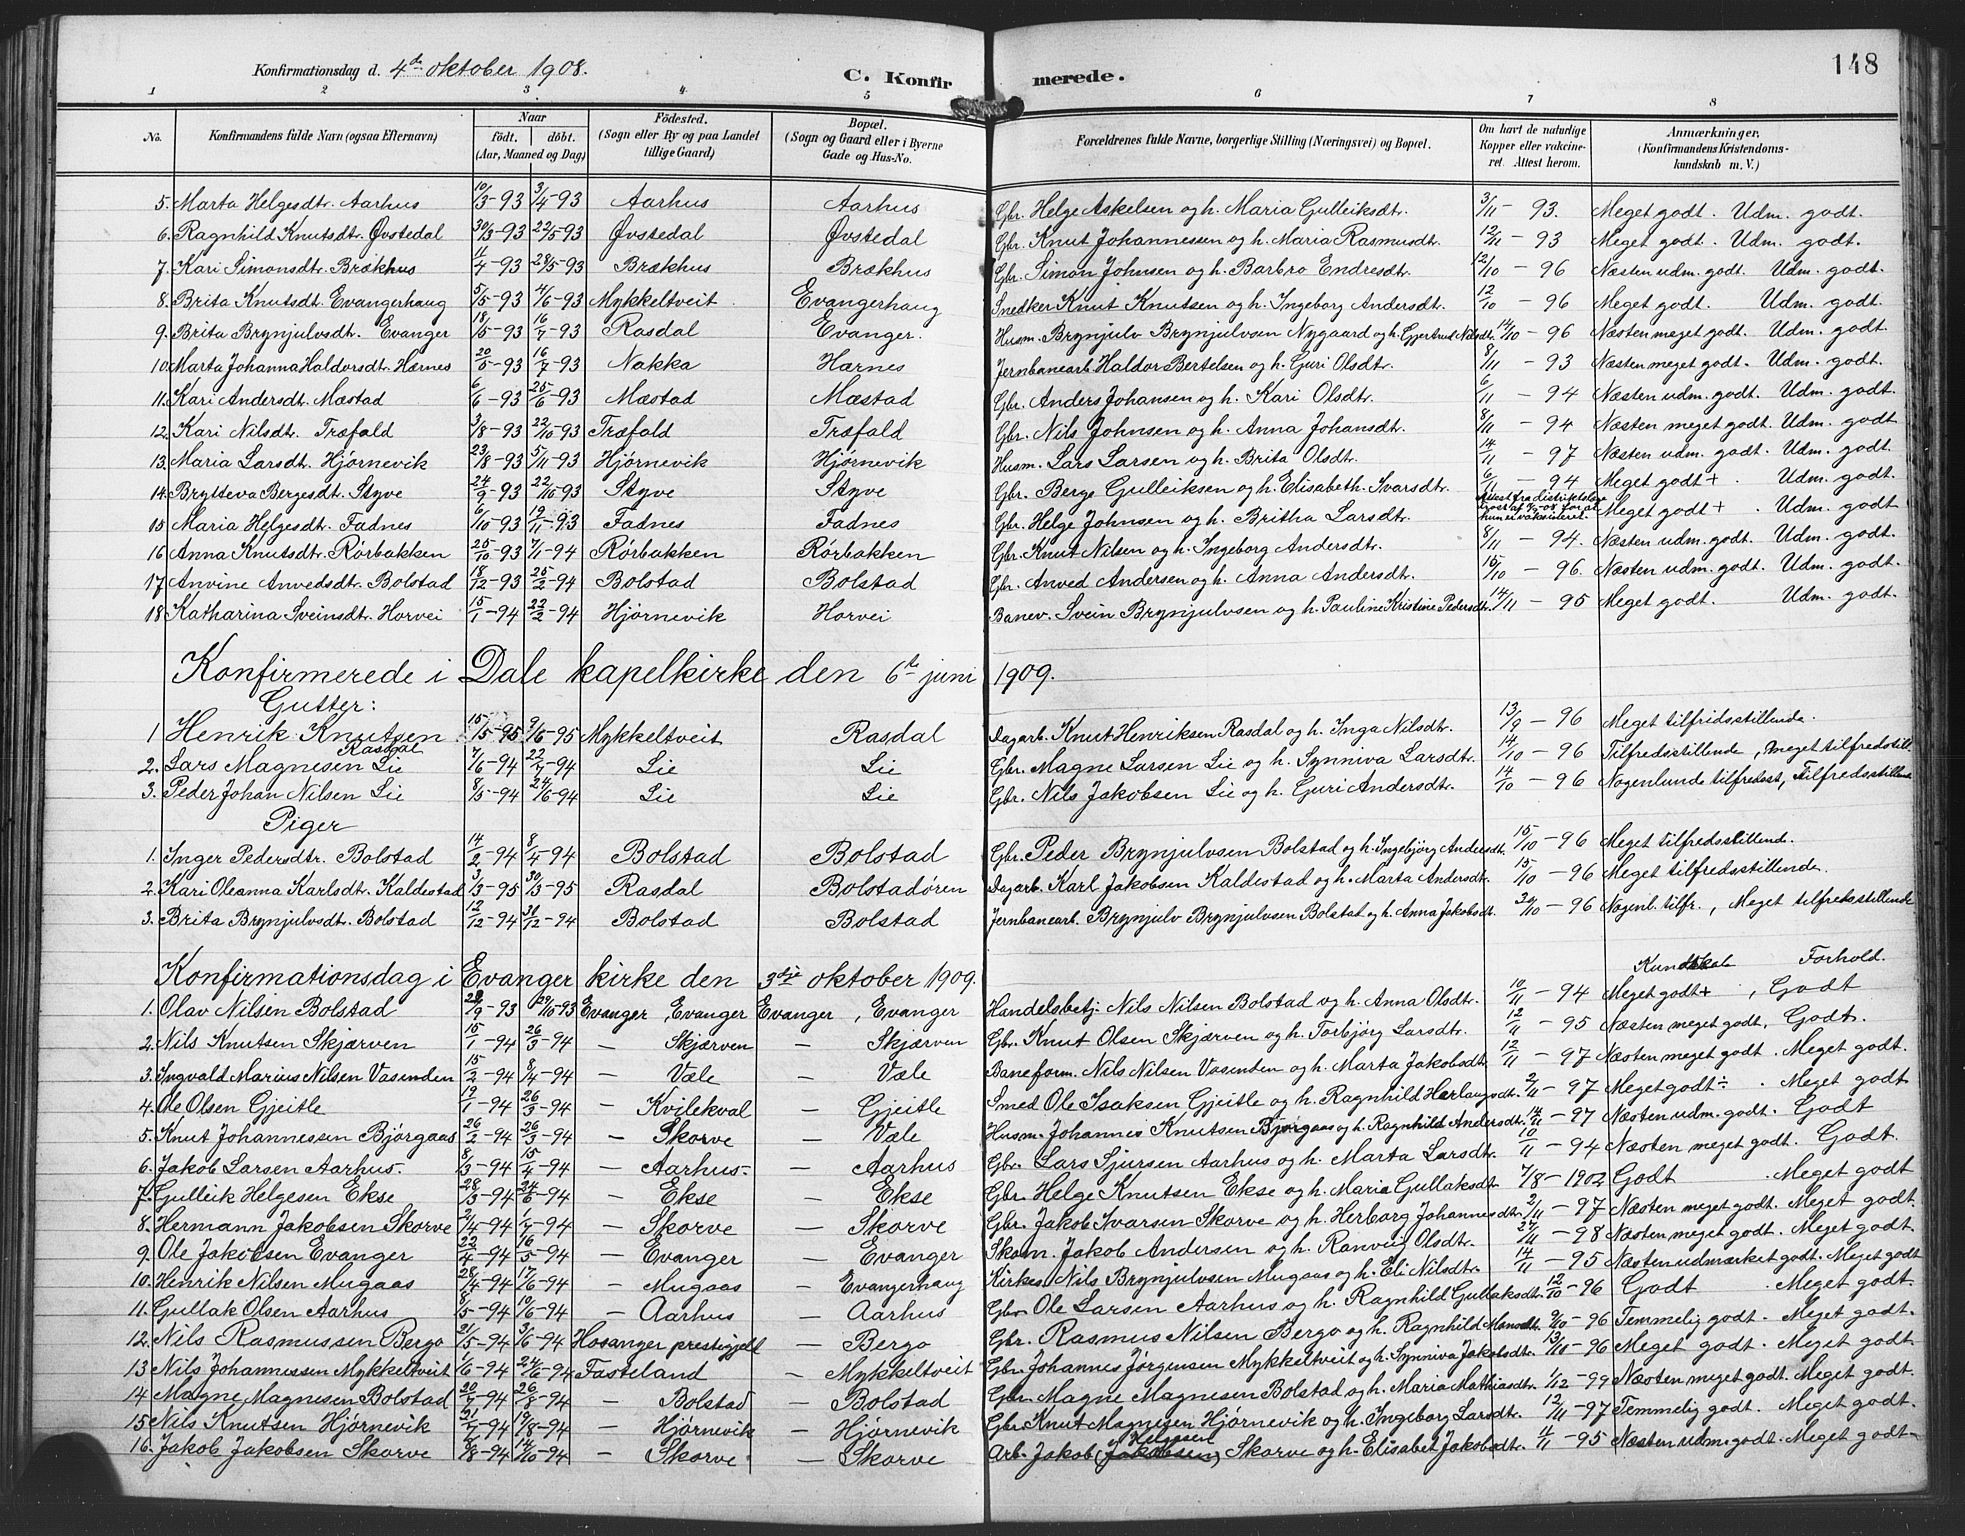 148
Konfirmationsdag d. 4de oktober 1908. C. Konfirmerede.
1 2 3 4 5 6 7 8
No. Konfirmandens fulde Navn (ogsaa Efternavn) Naar født. døbt. (Aar, Maaned og Dag) Fødested. (Sogn eller By og paa Landet tillige Gaard) Bopæl. (Sogn og Gaard eller i Byerne Gade og Hus-No. Forældrenes fulde Navne, borgerlige Stilling (Næringsvei) og Bopæl. Om havt de naturlige Kopper eller vakcineret. Attest herom. Anmærkninger. (Konfirmandens Kristendomskundskab m. V.)
5. Marta Helgesdtr. Aarhus 10/3-93 3/4-93 Aarhus Aarhus Gbr. Helge Askelsen og h. Maria Gulleiksdtr. 3/11 - 93. Meget godt. Udm. godt.
6. Ragnhild Knutsdtr. Øvstedal 30/3-93 22/5-93 Øvstedal Øvstedal Gbr. Knut Johannessen og h. Maria Rasmusdtr. 12/11 - 93 Meget godt. Udm. godt.
7. Kari Simonsdtr. Brækhus 11/4-93 28/5-93 Brækhus Brækhus Gbr. Simon Johnsen og h. Barbro Endresdtr. 12/10 - 96 Næsten udm. godt. Udm. godt.
8. Brita Knutsdt. Evangerhaug 5/5-93 4/6-93 Mykkeltveit Evangerhaug Snedker Knut Knutsen og h. Ingeborg Andersdt. 12/10 - 96 Meget godt. Udm. godt.
9. Brita Brynjulvsdt. Evanger 18/5-93 16/7-93 Rasdal Evanger. Husm. Brynjulv Brynjulvsen Nygaard og h. Gjertrud Nilsdt. 14/10 - 96 Næsten meget godt. Udm. godt.
10. Marta Johanna Haldorsdt. Hærnes 20/5-93 16/7-93 Nakka Hærnes Jernbanearb. Haldor Bertelsen og h. Guri Olsdtr. 8/11 - 93 Næsten meget godt. Udm. godt.
11. Kari Andersdt. Mæstad 6/6-93 25/6-93 Mæstad Mæstad Gbr. Anders Johansen og h. Kari Olsdt. 6/11 - 94 Næsten udm. godt. Udm. godt.
12. Kari Nilsdtr. Træfald 3/8-93 22/10-93 Træfald Træfald Gbr. Nils Johnsen og h. Anna Johansdt. 8/11 - 94 Næsten meget godt. Udm. godt.
13. Maria Larsdt. Hjørnevik 23/8-93 5/11-93 Hjørnevik Hjørnevik Husm. Lars Larsen og h. Brita Olsdt. 14/11 - 97 Næsten udm. godt. Udm. godt.
14. Brytteva Bergesdt. Styve 24/9-93 22/10-93 Styve Styve Gbr. Berge Gulleiksen og h. Elisabeth Ivarsdt. 6/11 - 94 Meget godt + . Udm. godt.
15 Maria Helgesdt. Fadnes 6/10-93 19/11-93 Fadnes Fadnes Gbr. Helge Johnsen og h. Britha Larsdt. Attest fra distriktslæge for at hun er vaksineret. Meget godt + . Udm. godt
16 Anna Knutsdtr. Rørbakken 25/10-93 7/11-94 Rørbakken Rørbakken Gbr. Knut Nilsen og h. Ingeborg Andersdt. 8/11 - 94. Næsten udm. godt. Udm. godt.
17. Anvine Anvedsdt. Bolstad 18/12-93 25/2-94 Bolstad Bolstad Gbr. Anved Andersen og h. Anna Andersdt. 15/10 - 96. Næsten udm. godt. Udm. godt.
18 Katharina Sveinsdt. Horvei 15/1-94 22/2-94 Hjørnevik Horvei Banev. Svein Brynjulvsen og h. Pauline Kristine Pedersdt. 14/11 - 95 Meget godt. Udm. godt.
Konfirmerede i Dale kapelkirke den 6te juni 1909.
Gutter:
1 Henrik Knutsen Rasdal 15/5-95 9/6-95 Mykkeltveit Rasdal Dagarb. Knut Henriksen Rasdal og h. Inga Nilsdt. 13/9 - 96 Meget tilfredsstillende.
2. Lars Magnesen Lie 7/6-94 22/7-94 Lie Lie Gbr. Magne Larsen Lie og h. Synniva Larsdt. 14/10 - 96 Tilfredsstillende, meget tilfredsstill.
3. Peder Johan Nilsen Lie 8/5-94 24/6-94 Lie Lie Gbr. Nils Jakobsen Lie og h. Guri Andersdt. 14/10 - 96 Nogenlunde tilfredsst., Tilfredsstillende
Piger
1. Inger Pedersdtr. Bolstad 14/2-94 8/4-94 Bolstad Bolstad Gbr. Peder Brynjulvsen Bolstad og h. Ingebjörg Andersdt. 15/10 - 96 Meget tilfredsstillende.
2. Kari Oleanna Karlsdt. Kaldestad 3/3-95 30/3-95 Rasdal Bolstadøren Dagarb. Karl Jakobsen Kaldestad og h. Marta Andersdt. 15/10 - 96 Meget tilfredsstillende.
3. Brita Brynjulvsdt. Bolstad 12/12-94 31/12-94 Bolstad Bolstad Jernbanearb. Brynjulv Brynjulvsen Bolstad og h. Anna Jakobsdt. 30/10 - 96 Nogenl. tilfr., Meget tilfredsstillende
Konfirmationsdag i Evanger kirke den 3dje oktober 1909. Kundskab Forhold.
1. Olav Nilsen Bolstad 28/9-93 29/10-93 Evanger, Evanger Evanger, Evanger Handelsbetj. Nils Nilsen Bolstad og h. Anna Olsdt. 10/11 - 94 Meget godt +, Godt
2. Nils Knutsen Skjærven 15/1-94 26/3-94 — Skjærven — Skjærven Gbr. Knut Olsen Skjærven og h. Torbjörg Larsdt. 12/11 - 95 Næsten meget godt, Godt.
3. Ingvald Marius Nilsen Vasenden 15/2-94 8/4-94 — Væle — Væle Baneform. Nils Nilsen Vasenden og h. Marta Jakobsdt. 12/11 - 97 Næsten meget godt. Meget godt.
4. Ole Olsen Gjeitle 19/1-94 26/3-94 — Kvilekval — Gjeitle Smed Ole Isaksen Gjeitle og h. Ragnhild Hærlaugsdt. 2/11 - 97 Meget godt ÷ . Meget godt
5. Knut Johannessen Bjørgaas 26/2-94 26/3-94 — Skorve — Væle Husm. Johannes Knutsen Bjørgaas og h. Ragnhild Andersdt. 14/11 - 97 Næsten udm. godt. Godt
6. Jakob Larsen Aarhus. 8/3-94 15/4-94 — Aarhus. — Aarhus Gbr. Lars Sjursen Aarhus og h. Marta Larsdt. 10/11 - 94 Næsten meget godt. Godt.
7. Gulleik Helgesen Ekse 28/3-94 24/6-94 — Ekse — Ekse Gbr. Helge Knutsen Ekse og h. Maria Gullaksdt. 7/8 - 1902 Godt . Meget godt
8. Hermann Jakobsen Skorve 2/4-94 1/7-94 — Skorve — Skorve Gbr. Jakob Ivarsen Skorve og h. Herborg Johannesdt. 2/11 - 97 Næsten meget godt. Meget godt.
9. Ole Jakobsen Evanger 22/4-94 16/5-94 — Evanger — Evanger Skom. Jakob Andersen og h. Ranveig Olsdt. 27/11 - 98 Næsten meget godt. Meget godt.
10. Henrik Nilsen Mugaas 28/4-94 17/6-94 — Mugaas — Evangerhaug Kirkes. Nils Brynjulvsen Mugaas og h. Eli Nilsdt. 14/11 - 95 Næsten udmærket godt. Meget godt
11. Gullak Olsen Aarhus 8/5-94 10/6-94 — Aarhus — Aarhus Gbr. Ole Larsen Aarhus og h. Ragnhild Gullaksdt. 12/10 - 96 Godt . Meget godt.
12. Nils Rasmussen Bergo 21/5-94 3/6-94 Hosanger prestegjeld — Bergo Gbr. Rasmus Nilsen Bergo og h. Ragnhild Monsdt. 9/10 - 96 Temmelig godt. Meget godt.
13 Nils Johannessen Mykkeltveit 1/6-94 24/6-94 Fasteland — Mykkeltveit Gbr. Johannes Jørgensen Mykkeltveit og h. Synniva Jakobsdt. 13/10 - 96 Meget godt. Meget godt
14 Magne Magnesen Bolstad 20/7-94 26/8-94 — Bolstad — Bolstad Gbr. Magne Magnesen Bolstad og h. Maria Mathiasdt. 1/12 - 99 Næsten meget godt. Meget godt.
15. Nils Knutsen Hjørnevik 31/7-94 19/8-94 — Hjørnevik — Hjørnevik Gbr. Knut Magnesen Hjørnevik og h. Ingeborg Larsdt. 12/11 - 97 Temmelig godt. Meget godt.
16. Jakob Jakobsen Skorve 7/8-94 14/10-94 — Skorve — Skorve Arb. Jakob (Jakobsen) Helgesen Skorve og h. Elisabet Jakobsdt. 4/11 - 95 Næsten udm. godt. Meget godt.